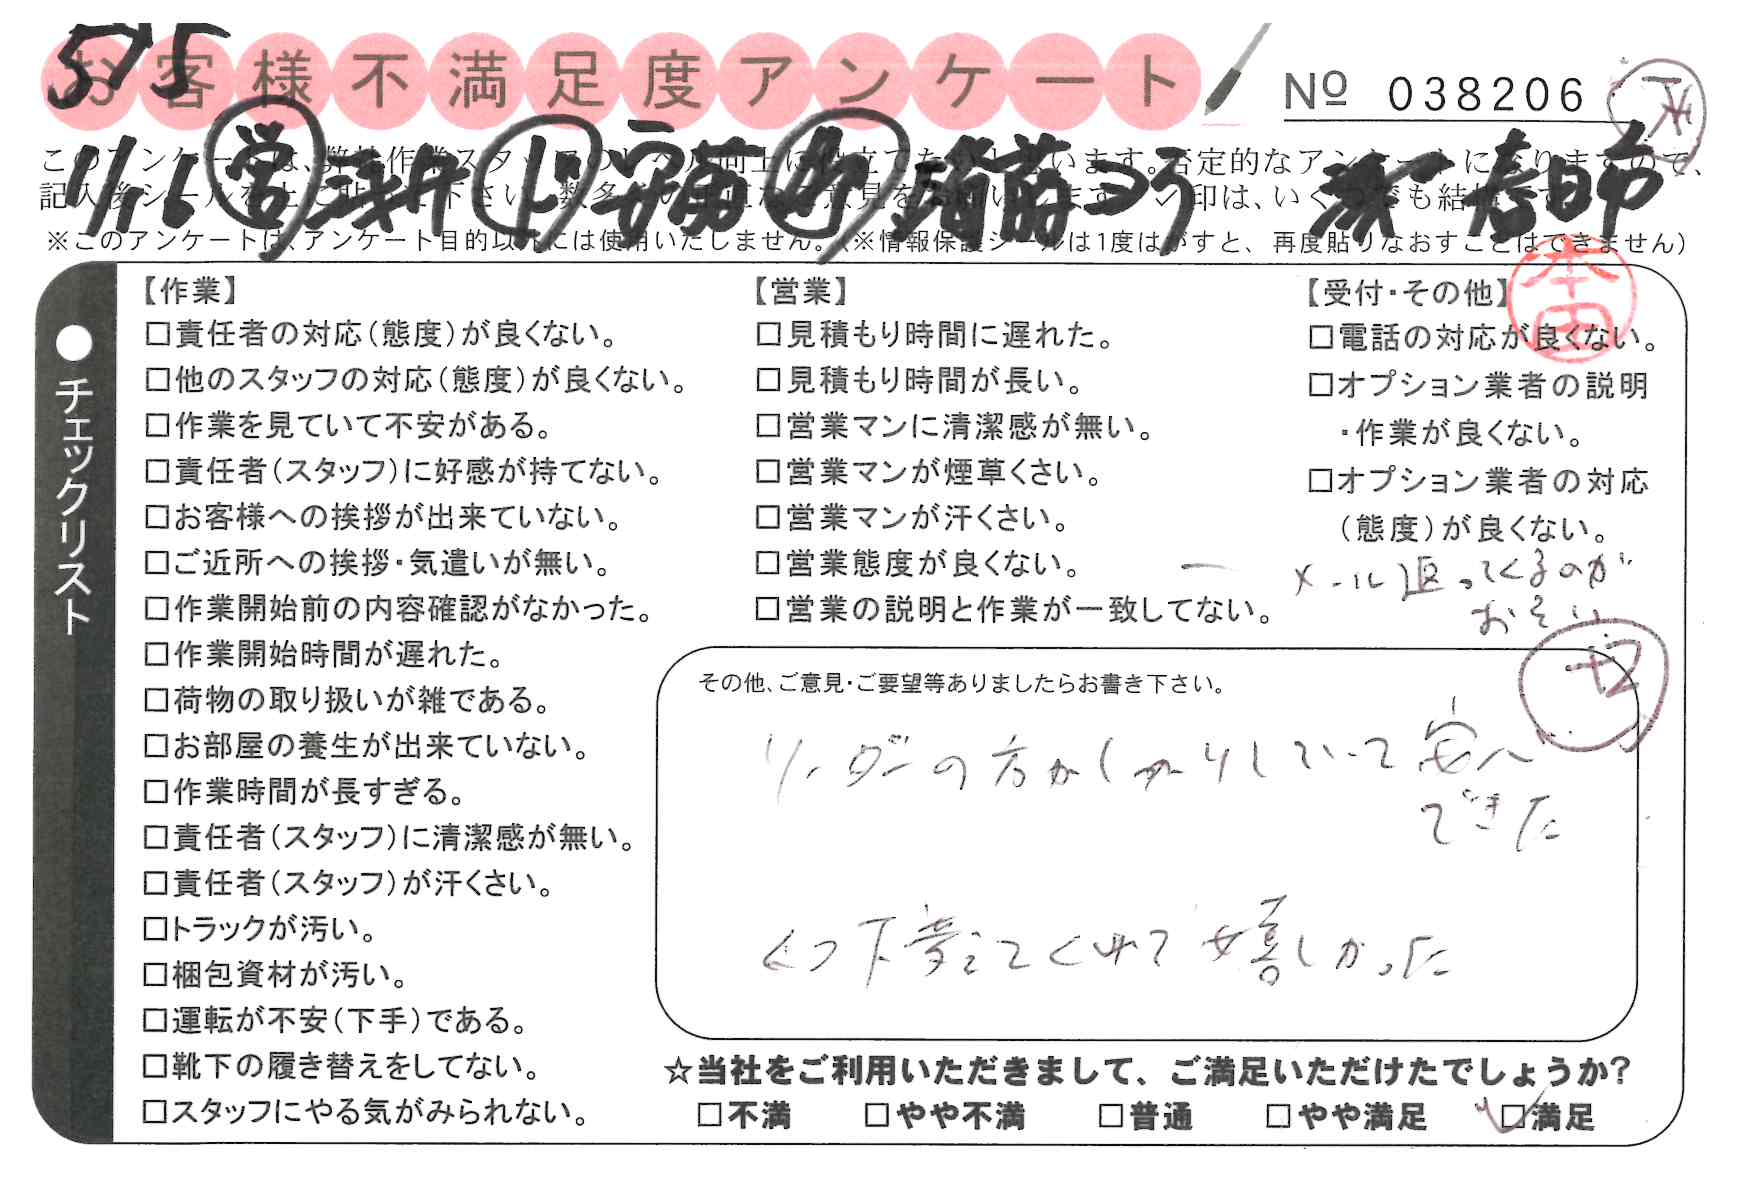 575
お客様不満足度アンケート
Nº 038206
1/16 営 浅井 ト 安藤
このアンケートは、弊社作業スタッフの向上に役立てたいと思います。否定的なアンケートになりますので、
記入後シールを上に貼って下さい。数多くの正直なご意見をお願いします。✓印は、いくつでも結構です。
※このアンケートは、アンケート目的以外には使用いたしません。(※情報保護シールは1度はがすと、再度貼りなおすことはできません)
本田
●チェックリスト
【作業】
□責任者の対応(態度)が良くない。
□他のスタッフの対応(態度)が良くない。
□作業を見ていて不安がある。
□責任者(スタッフ)に好感が持てない。
□お客様への挨拶が出来ていない。
□ご近所への挨拶・気遣いが無い。
□作業開始前の内容確認がなかった。
□作業開始時間が遅れた。
□荷物の取り扱いが雑である。
□お部屋の養生が出来ていない。
□作業時間が長すぎる。
□責任者(スタッフ)に清潔感が無い。
□責任者(スタッフ)が汗くさい。
□トラックが汚い。
□梱包資材が汚い。
□運転が不安(下手)である。
□靴下の履き替えをしてない。
□スタッフにやる気がみられない。
【営業】
□見積もり時間に遅れた。
□見積もり時間が長い。
□営業マンに清潔感が無い。
□営業マンが煙草くさい。
□営業マンが汗くさい。
□営業態度が良くない。
□営業の説明と作業が一致してない。
【受付・その他】
□電話の対応が良くない。
□オプション業者の説明
・作業が良くない。
□オプション業者の対応
(態度)が良くない。
ー メール返ってくるのが
おそい
その他、ご意見・ご要望等ありましたらお書き下さい。
リーダーの方がしっかりしていて安心
できた
くつ下替えてくれて嬉しかった
☆当社をご利用いただきまして、ご満足いただけたでしょうか?
□不満 □やや不満 □普通 □やや満足 ☑満足